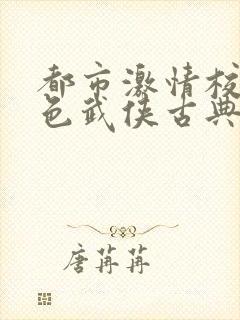 都市激情校
色武侠古典
唐苒苒